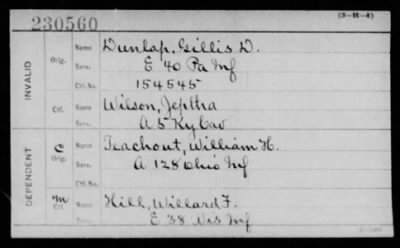 230560
(3-H-4)
INVALID
Orig.
Name Dunlap, Gillis D.
Serv. E 40 Pa Inf
Ctf. No. 154545
Ctf.
Name Wilson, Jeptha
Serv. A 5 Ky Cav
DEPENDENT
C
Orig.
Name Teachout, William H.
Serv. A 128 Ohio Inf
Ctf. No.
M
Ctf.
Name Hill, Willard F.
Serv. E 38 Wis Inf